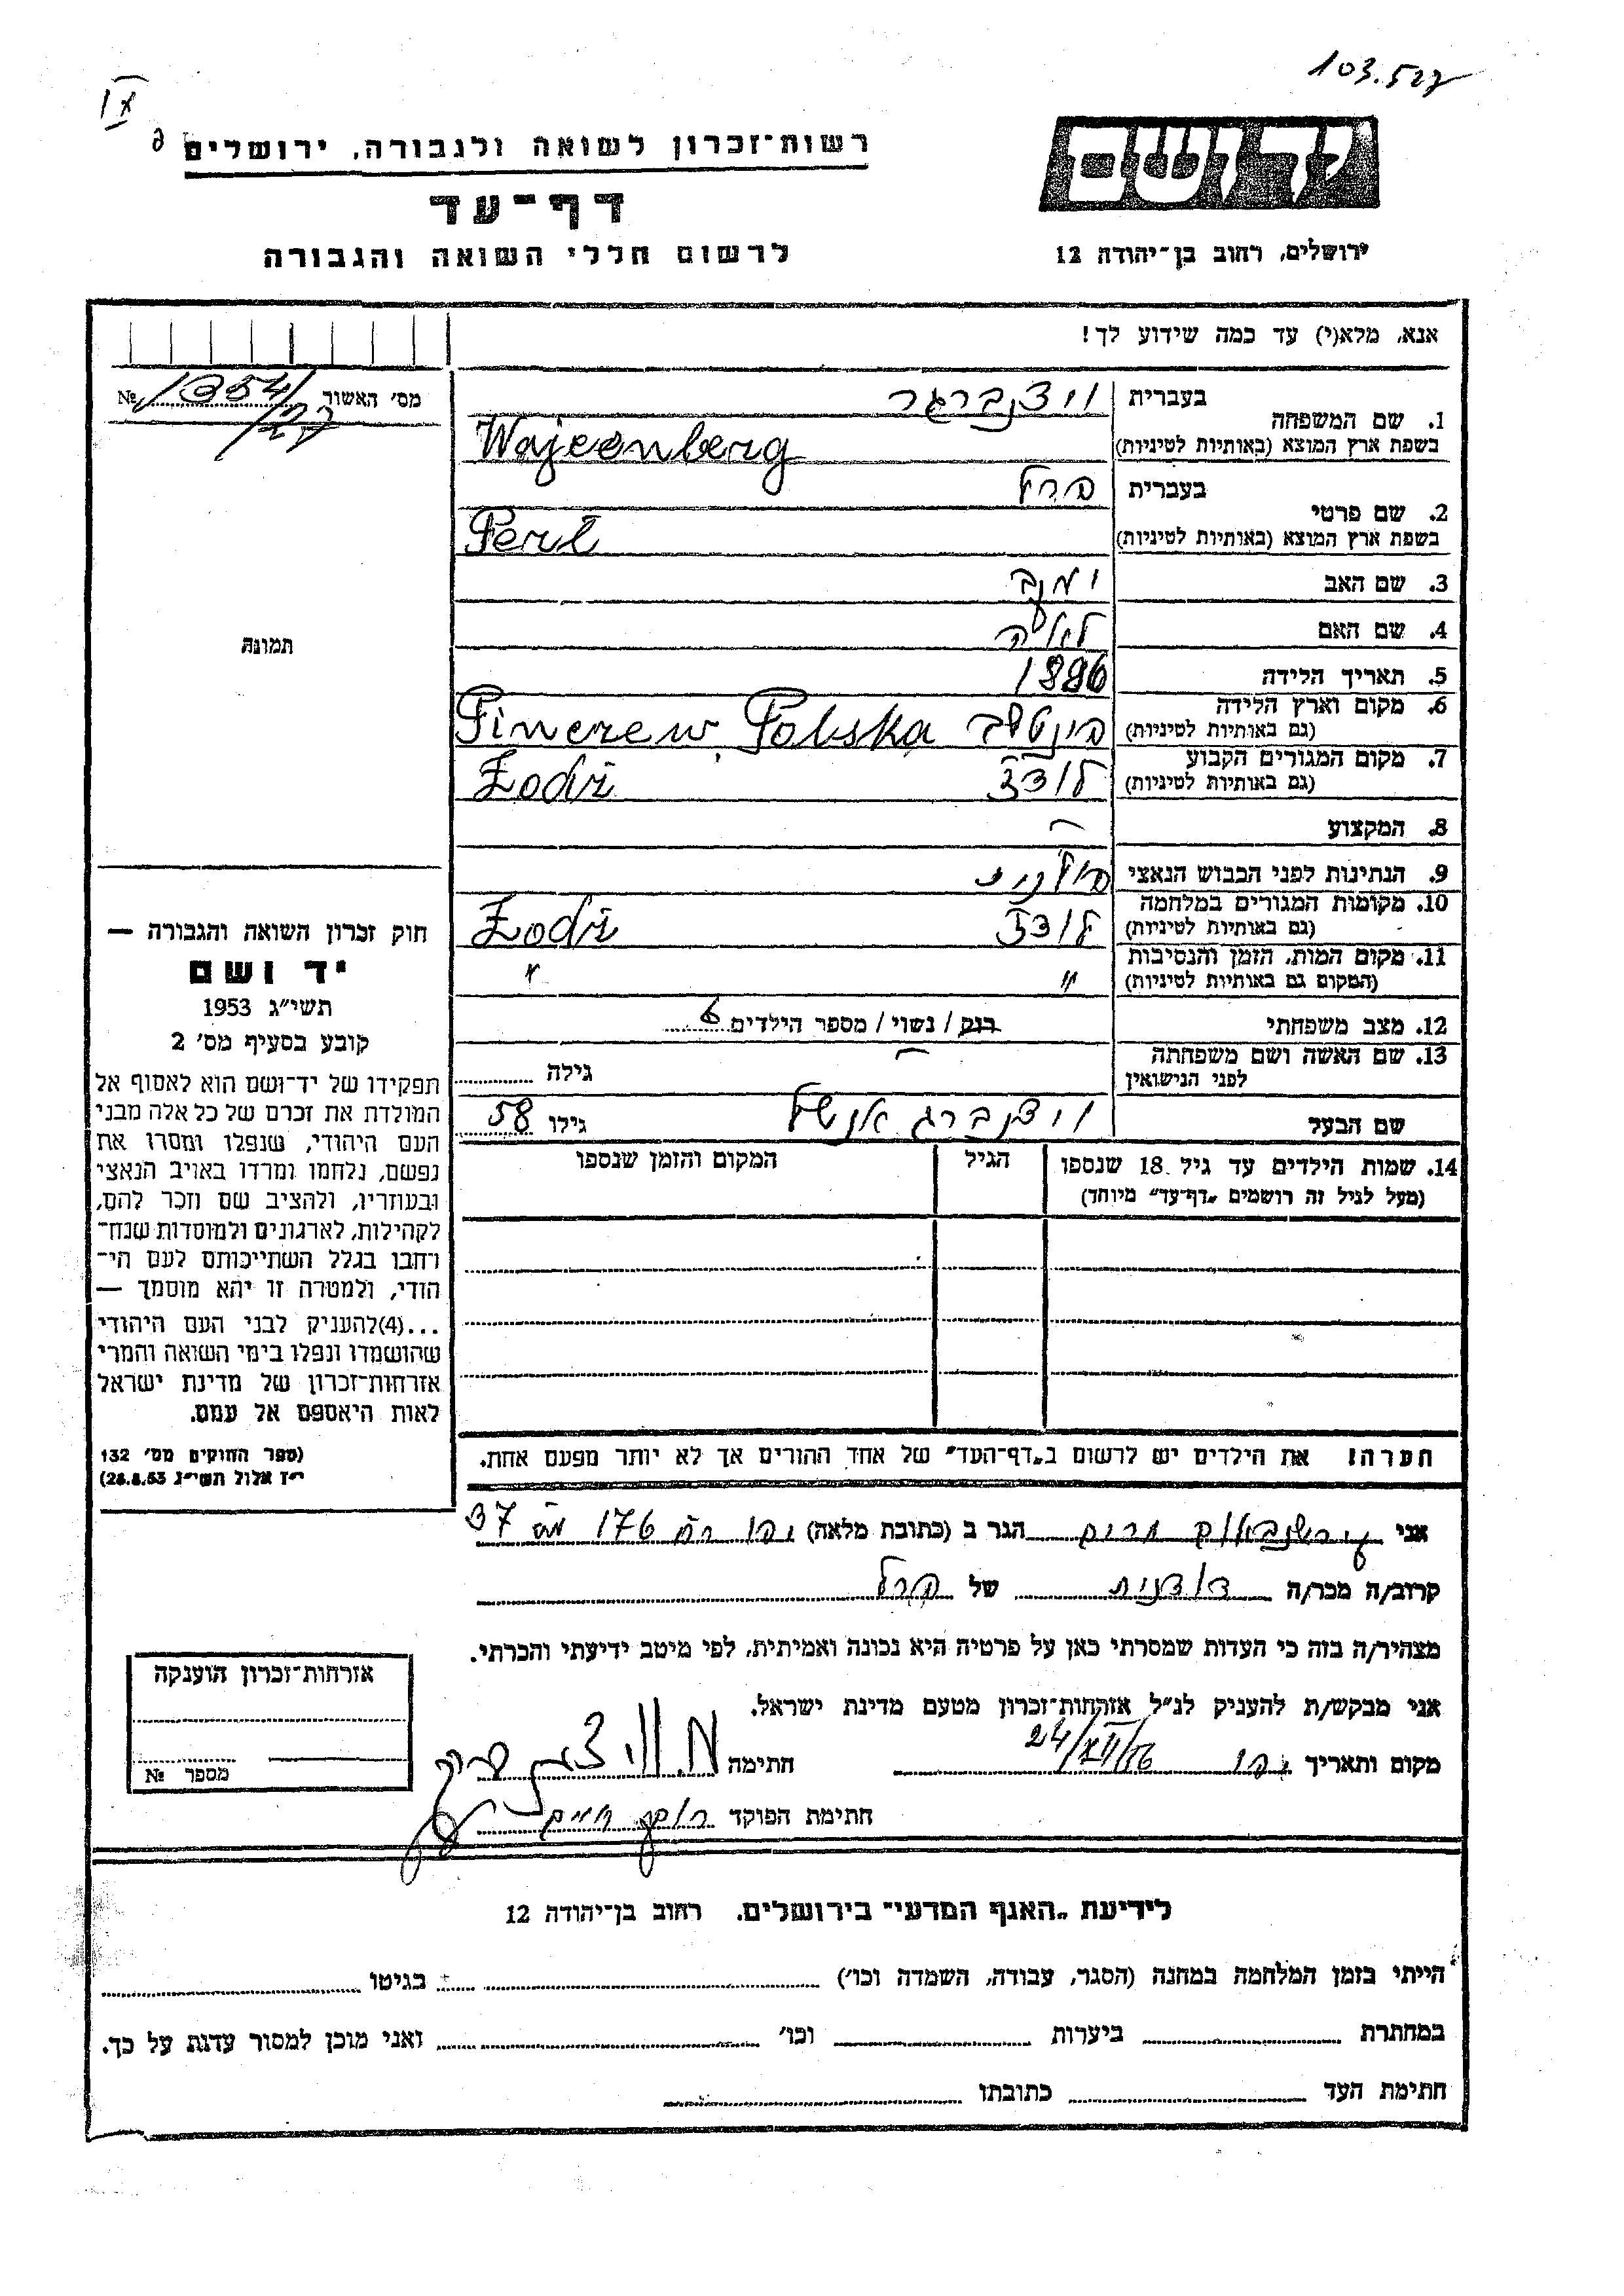 103.527
IX
רשות־זכרון לשואה ולגבורה, ירושלים
דף־עד
לרשום חללי השואה והגבורה
יד ושם
ירושלים, רחוב בן־יהודה 12
אנא, מלא(י) עד כמה שידוע לך!
מס׳ האשור № 1354/
27
תמונה
1. שם המשפחה
בעברית ויצנברגר
בשפת ארץ המוצא (באותיות לטיניות) Wajcenberg
2. שם פרטי
בעברית פרל
בשפת ארץ המוצא (באותיות לטיניות) Perl
3. שם האב
4. שם האם
5. תאריך הלידה 1886
6. מקום וארץ הלידה
(גם באותיות לטיניות) Pinczew, Polska
7. מקום המגורים הקבוע
(גם באותיות לטיניות) לודז Łodź
8. המקצוע —
9. הנתינות לפני הכבוש הנאצי פולנית
10. מקומות המגורים במלחמה
(גם באותיות לטיניות) לודז Łodź
11. מקום המות, הזמן והנסיבות
(המקום גם באותיות לטיניות) " "
12. מצב משפחתי רווק / נשוי / מספר הילדים 6
13. שם האשה ושם משפחתה
לפני הנישואין — גילה
שם הבעל ויצנברג אנשל גילו 58
14. שמות הילדים עד גיל 18 שנספו
(מעל לגיל זה רושמים „דף־עד״ מיוחד)
הגיל
המקום והזמן שנספו
הערה! את הילדים יש לרשום ב„דף־העד״ של אחד ההורים אך לא יותר מפעם אחת.
חוק זכרון השואה והגבורה —
יד ושם
תשי״ג 1953
קובע בסעיף מס׳ 2
תפקידו של יד־ושם הוא לאסוף אל
המולדת את זכרם של כל אלה מבני
העם היהודי, שנפלו ומסרו את
נפשם, נלחמו ומרדו באויב הנאצי
ובעוזריו, ולהציב שם וזכר להם,
לקהילות, לארגונים ולמוסדות שנח־
רחבו בגלל השתייכותם לעם הי־
הודי, ולמטרה זו יהא מוסמך —
...(4)להעניק לבני העם היהודי
שהושמדו ונפלו בימי השואה והמרי
אזרחות־זכרון של מדינת ישראל
לאות היאספם אל עמם.
(ספר החוקים מס׳ 132
י״ז אלול תשי״ג 28.8.53)
אני מרים הגר ב (כתובת מלאה) יפו 176 37
קרוב/ה מכר/ה דודנית של פרל
מצהיר/ה בזה כי העדות שמסרתי כאן על פרטיה היא נכונה ואמיתית, לפי מיטב ידיעתי והכרתי.
אני מבקש/ת להעניק לנ״ל אזרחות־זכרון מטעם מדינת ישראל.
מקום ותאריך יפו 24/XII/56 חתימה
חתימת הפוקד
אזרחות־זכרון הוענקה
מספר №
לידיעת „האגף המדעי״ בירושלים, רחוב בן־יהודה 12
הייתי בזמן המלחמה במחנה (הסגר, עבודה, השמדה וכו׳) בגיטו
במחתרת ביערות וכו׳ ואני מוכן למסור עדות על כך.
חתימת העד כתובתו